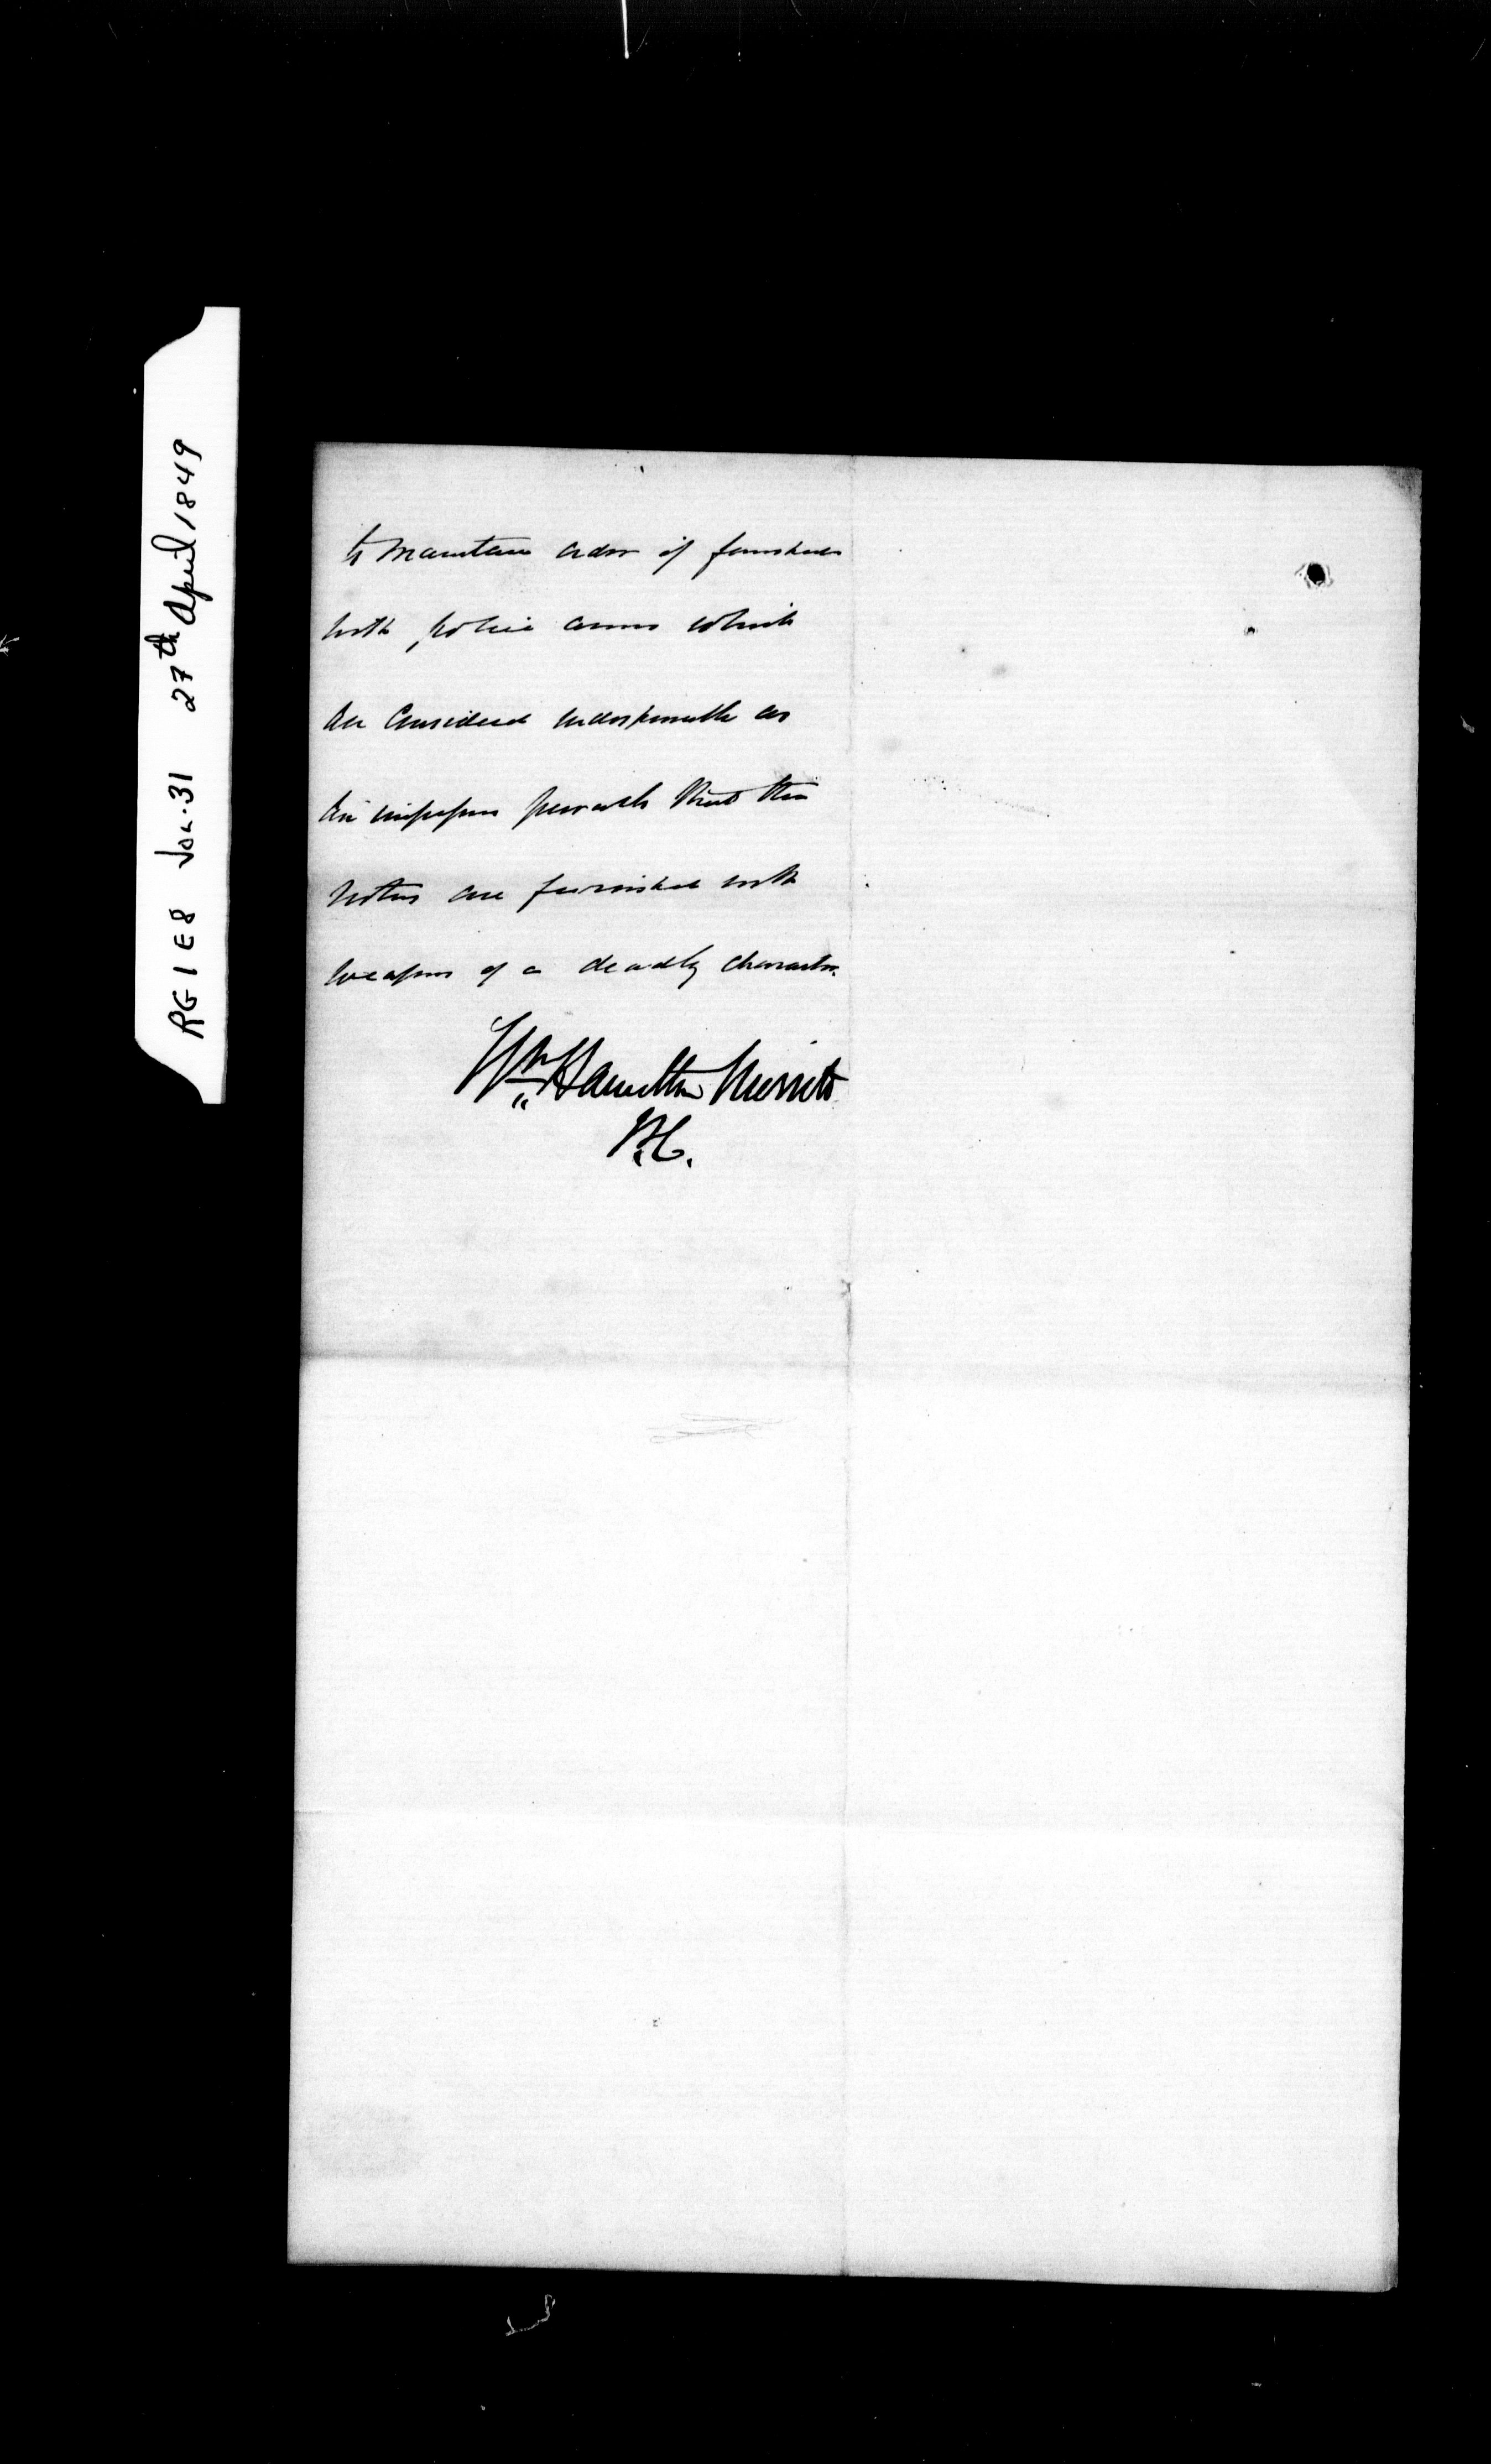 RG 1 E8 Vol. 31 27th April 1849
to maintain order if furnished
with police arms which
are considered indispensable as
an impression prevails that the
rioters are furnished with
weapons of a deadly character.
Wm Hamilton Merritt
P.C.